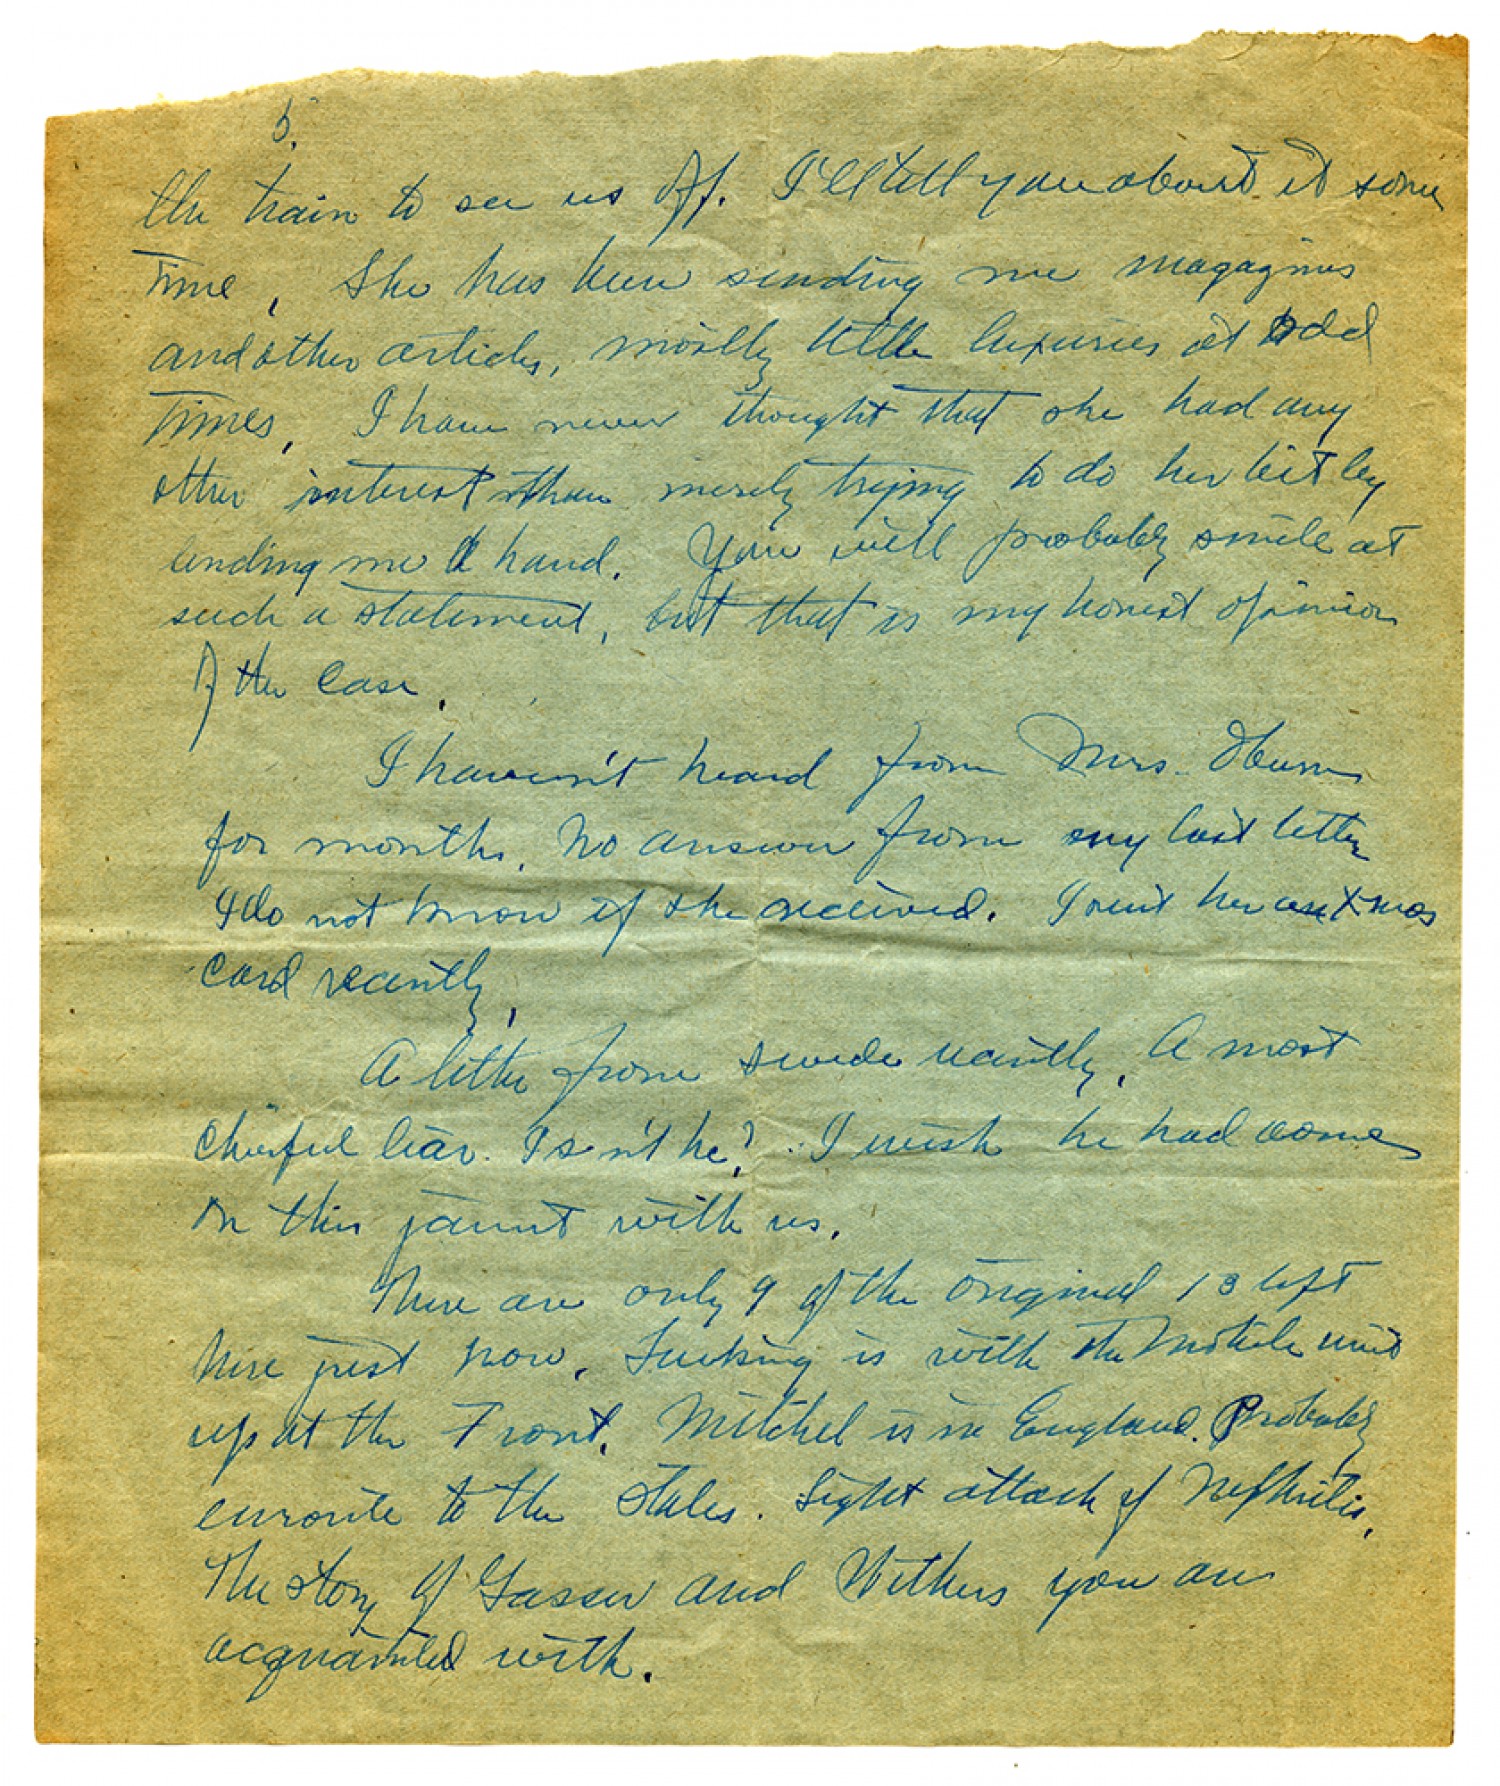 5.
the train to see us off. I'll tell you about it some
time. She has been sending me magazines
and other articles, mostly little luxuries at odd
times. I have never thought that she had any
other interest than merely trying to do her bit by
lending me a hand. You will probably smile at
such a statement, but that is my honest opinion
of the case.
I haven't heard from Mrs.
for months. No answer from my last letter
I do not know if she received. I sent her an Xmas
card recently.
A letter from Swede recently. A most
cheerful liar. Isn't he? I wish he had come
on this jaunt with us.
There are only 9 of the original 13 left
here just now. is with the Mobile unit
up at the Front. Mitchel is in England. Probably
enroute to the States. Light attack of Nephritis.
The story of Gasser and Withers you are
acquainted with.